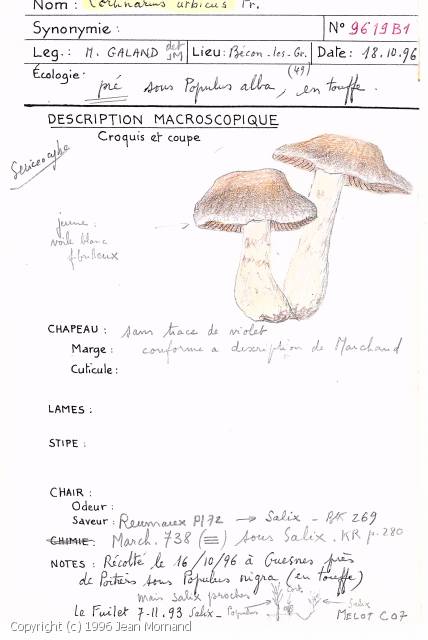 Nom : Cortinarius urbicus Fr.
Synonymie : N° 9619B1
Leg. : M. GALAND det JM Lieu : Bécon-les-Gr. Date : 18.10.96
(49)
Écologie : pré sous Populus alba, en touffe.
DESCRIPTION MACROSCOPIQUE
Croquis et coupe
Sericeocybe
jeune :
voile blanc
fibrilleux
CHAPEAU : sans trace de violet
Marge : conforme a description de Marchand
Cuticule :
LAMES :
STIPE :
CHAIR :
Odeur :
Saveur : Reumaux Pl 72 → Salix - BK 269
CHIMIE : March. 738 (≡) sous Salix. KR p. 280
NOTES : Récolté le 16/10/96 à Guesnes près
de Poitiers sous Populus nigra (en touffe)
mais salix proches
Le Fuilet 7-11.93 Salix - Populus Cort. Salix
MELOT C07
Copyright (c) 1996 Jean Mornand